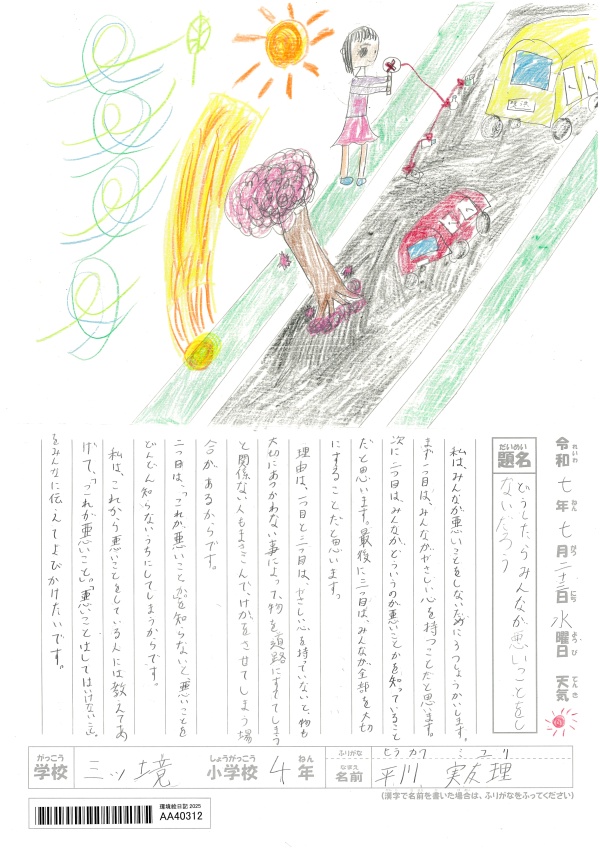 横浜
令和七年七月二十三日水曜日 天気
れいわ ねん がつ にち ようび てんき
だいめい
題名
どうしたらみんなが悪いことをし
ないだろう
私は、みんなが悪いことをしないために3つしょうかいします。
まず一つ目は、みんながやさしい心を持つことだと思います。
次に二つ目は、みんながどういうのが悪いことかを知っていること
だと思います。最後に三つ目は、みんなが全部を大切
にすることだと思います。
理由は、一つ目と三つ目は、やさしい心を持っていないと、物も
大切にあつかわない事によって、物を道路にすててしまう
と関係ない人もまきこんで、けがをさせてしまう場
合があるからです。
二つ目は、「これが悪いこと」を知らないと、悪いことを
どんどん知らないうちにしてしまうからです。
私は、これから悪いことをしている人には教えてあ
げて、「これが悪いこと。」「悪いことはしてはいけない。」
をみんなに伝えてよびかけたいです。
がっこう しょうがっこう ねん
学校 三ツ境 小学校 4年
ふりがな ヒラカワ ミユリ
なまえ
名前 平川 実友理
(漢字で名前を書いた場合は、ふりがなをふってください)
環境絵日記 2025
AA40312